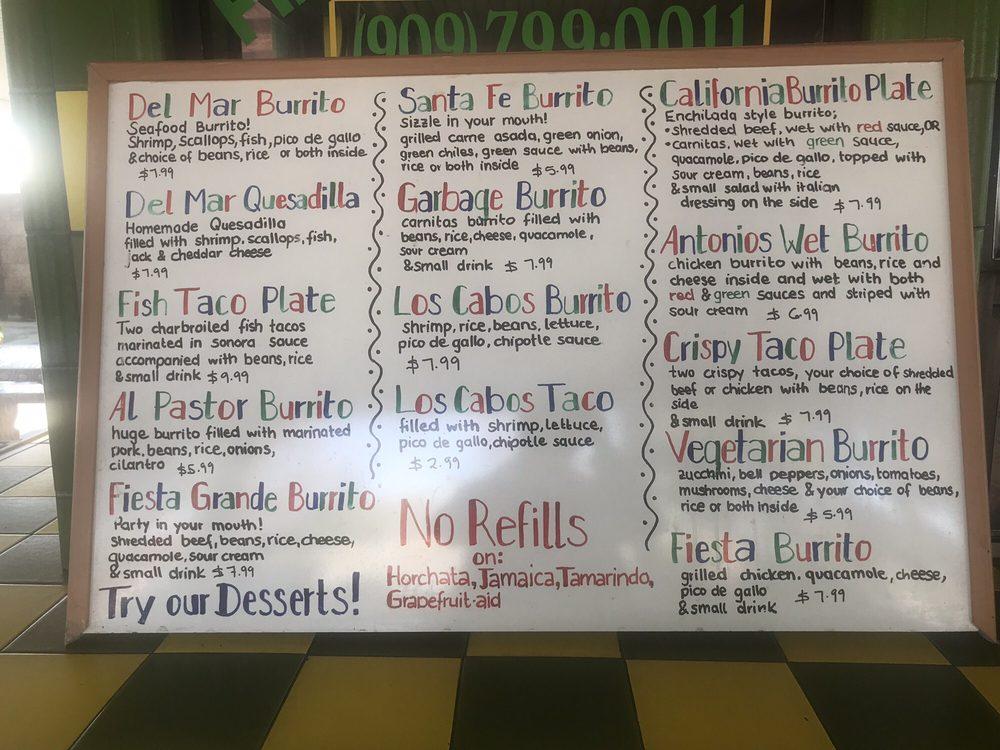 (909)799-0011
Del Mar Burrito
Seafood Burrito!
Shrimp, Scallops, fish, pico de gallo
& choice of beans, rice or both inside
$7.99
Del Mar Quesadilla
Homemade Quesadilla
filled with shrimp, scallops, fish,
jack & cheddar cheese
$7.99
Fish Taco Plate
Two charbroiled fish tacos
marinated in sonora sauce
accompanied with beans, rice
& small drink $9.99
Al Pastor Burrito
huge burrito filled with marinated
pork, beans, rice, onions,
cilantro $5.99
Fiesta Grande Burrito
Party in your mouth!
shredded beef, beans, rice, cheese,
guacamole, sour cream
& small drink $7.99
Try our Desserts!
Santa Fe Burrito
Sizzle in your mouth!
grilled carne asada, green onion,
green chiles, green sauce with beans,
rice or both inside $5.99
Garbage Burrito
carnitas burrito filled with
beans, rice, cheese, guacamole,
sour cream
& small drink $7.99
Los Cabos Burrito
shrimp, rice, beans, lettuce,
pico de gallo, chipotle sauce
$7.99
Los Cabos Taco
filled with shrimp, lettuce,
pico de gallo, chipotle sauce
$2.99
No Refills
on:
Horchata, Jamaica, Tamarindo,
Grapefruit-aid
California Burrito Plate
Enchilada style burrito;
•shredded beef, wet with red sauce, OR
•carnitas, wet with green sauce,
guacamole, pico de gallo, topped with
sour cream, beans, rice
& small salad with italian
dressing on the side $7.99
Antonios Wet Burrito
chicken burrito with beans, rice and
cheese inside and wet with both
red & green sauces and striped with
sour cream $6.99
Crispy Taco Plate
two crispy tacos, your choice of shredded
beef or chicken with beans, rice on the
side
& small drink $7.99
Vegetarian Burrito
zucchini, bell peppers, onions, tomatoes,
mushrooms, cheese & your choice of beans,
rice or both inside $5.99
Fiesta Burrito
grilled chicken, guacamole, cheese,
pico de gallo $7.99
& small drink